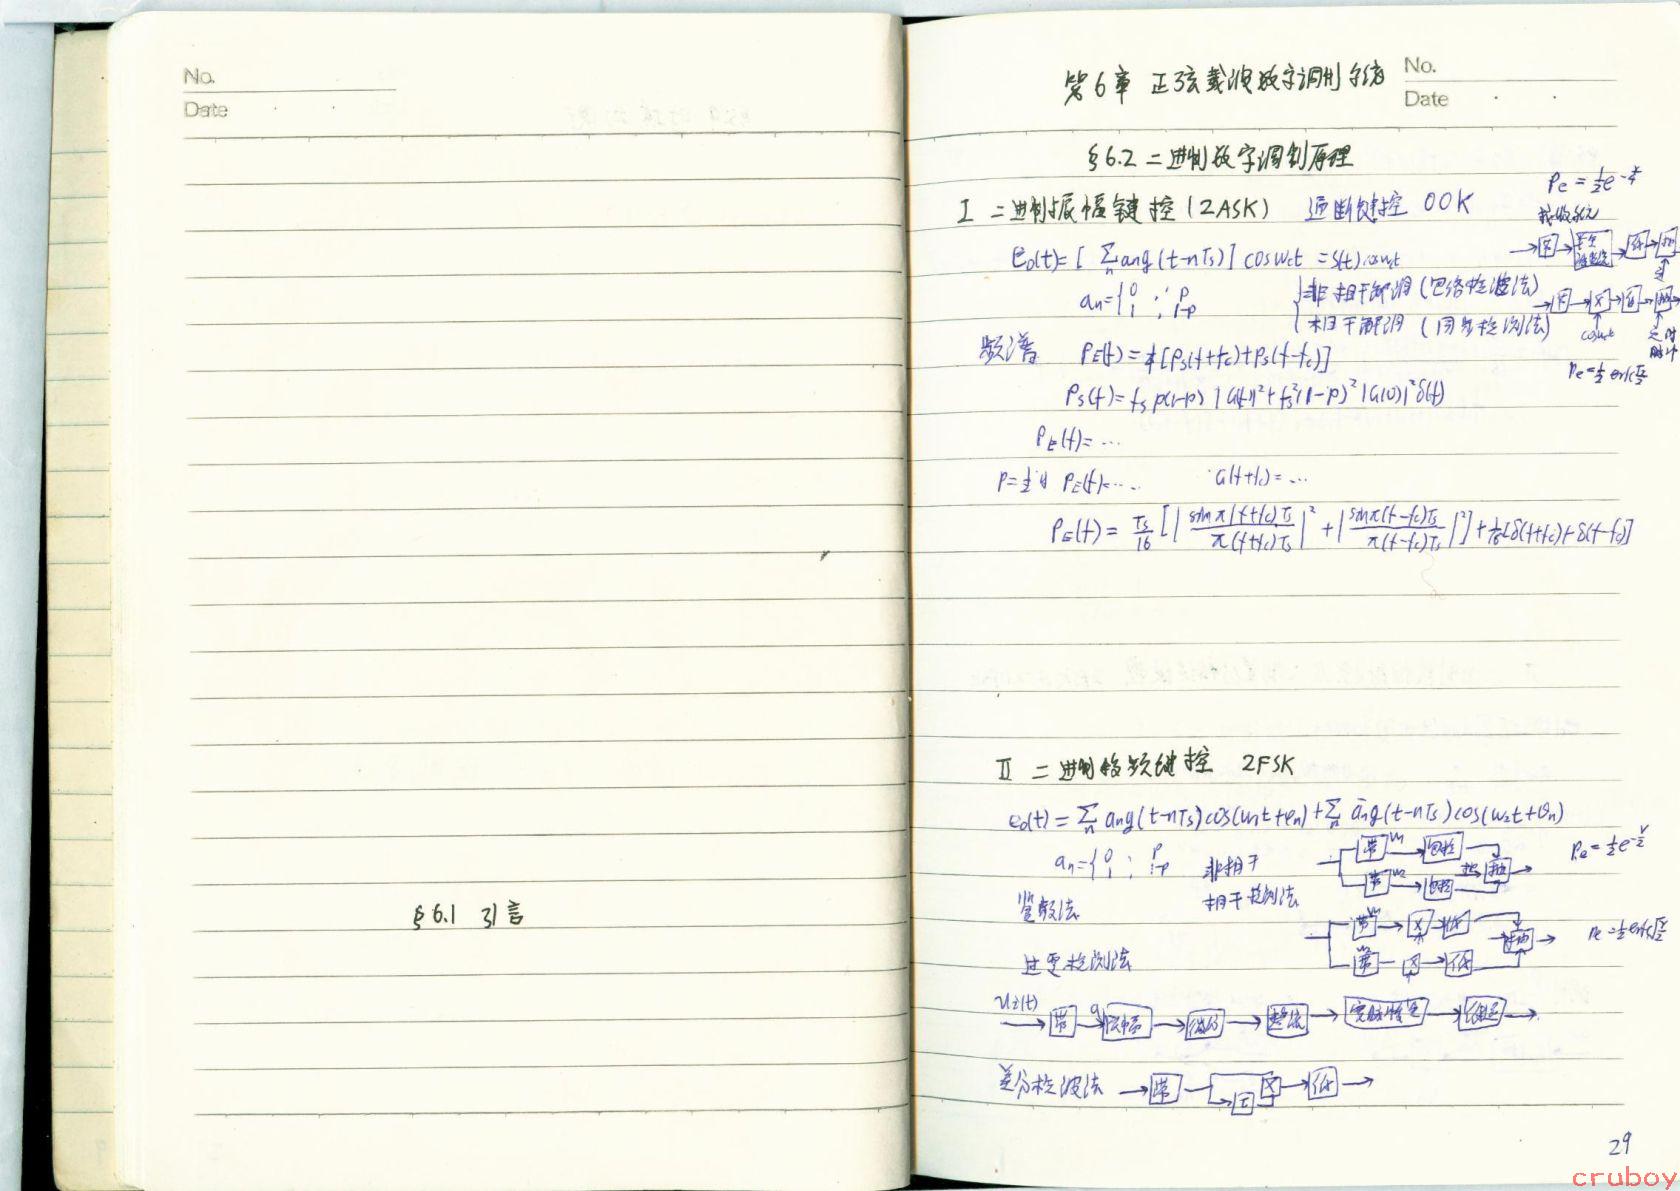 No.
Date
§6.1 引言
第6章 正弦载波数字调制系统
No.
Date
§6.2 二进制数字调制原理
I 二进制振幅键控(2ASK) 通断键控 OOK
e₀(t)=[Σₙ aₙg(t-nTs)]cosωct =S(t)cosωct
aₙ={0 ; P
1 ; 1-P
{非相干解调(包络检波法)
相干解调(同步检测法)
Pe=½e^{-r/4}
接收系统
cosωct
定时脉冲
Pe=½erfc
频谱 P_E(f)=¼[Ps(f+fc)+Ps(f-fc)]
Ps(f)=fs P(1-P)|G(f)|²+fs²(1-P)²|G(0)|²δ(f)
P_E(f)=…
P=½时 P_E(f)=… G(f+fc)=…
P_E(f)= Ts/16 [|sinπ(f+fc)Ts / π(f+fc)Ts|² + |sinπ(f-fc)Ts / π(f-fc)Ts|²]+1/16[δ(f+fc)+δ(f-fc)]
II 二进制移频键控 2FSK
e₀(t)=Σₙ aₙg(t-nTs)cos(ω₁t+φₙ)+Σₙ āₙg(t-nTs)cos(ω₂t+θₙ)
aₙ={0 ; P
1 ; 1-P
非相干
相干检测法
带 ω₁ 包检
带 ω₂ 包检
抽
Pe=½e^{-r/2}
鉴频法
带 × 低
带 × 低
抽
Pe=½erfc√(r/2)
过零检测法
带 限幅 微分 整流 低通
差分检波法 带 τ × 低
29
cruboy